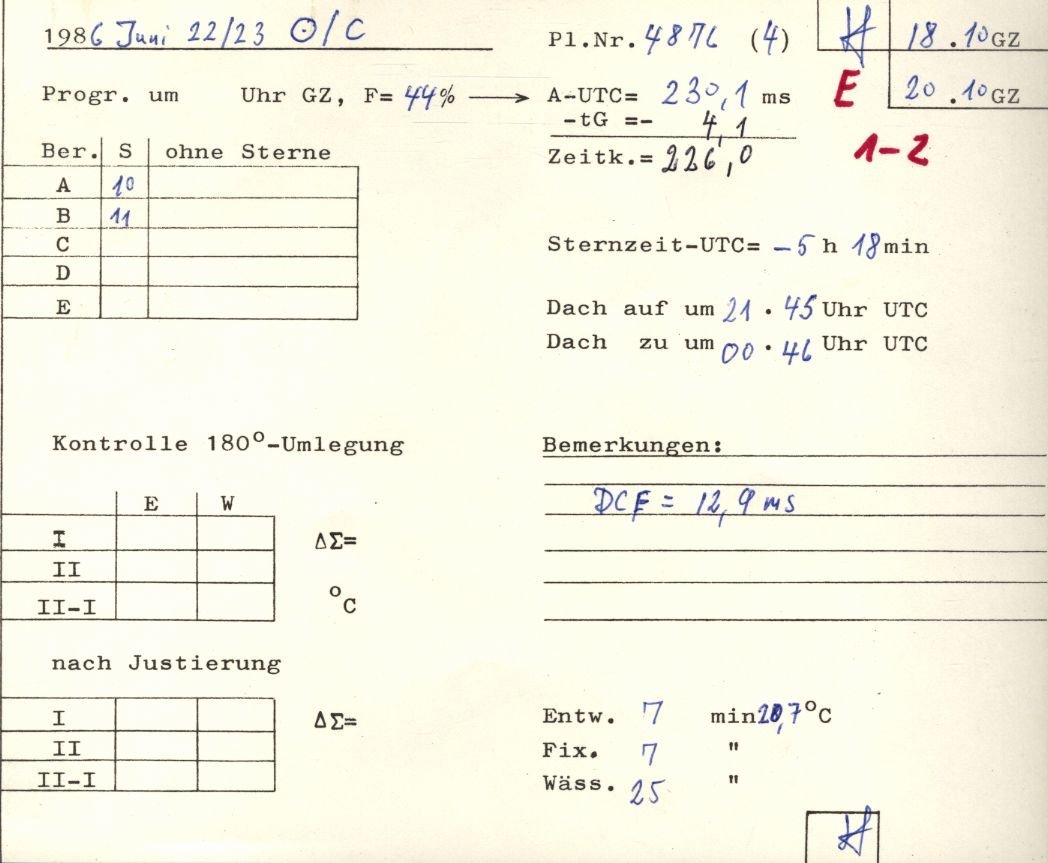 1986 Juni 22/23 ⊙/C
Pl.Nr. 4876 (4)
18.10 GZ
Progr. um Uhr GZ, F= 44% → A-UTC= 230,1 ms
E
20.10 GZ
-tG =- 4,1
Zeitk.= 226,0
1-2
Ber. S ohne Sterne
A 10
B 11
C
D
E
Sternzeit-UTC= -5 h 18 min
Dach auf um 21.45 Uhr UTC
Dach zu um 00.46 Uhr UTC
Kontrolle 180°-Umlegung
E W
I ΔΣ=
II
II-I °C
nach Justierung
I ΔΣ=
II
II-I
Bemerkungen:
DCF = 12,9 ms
Entw. 7 min 20,7°C
Fix. 7 "
Wäss. 25 "